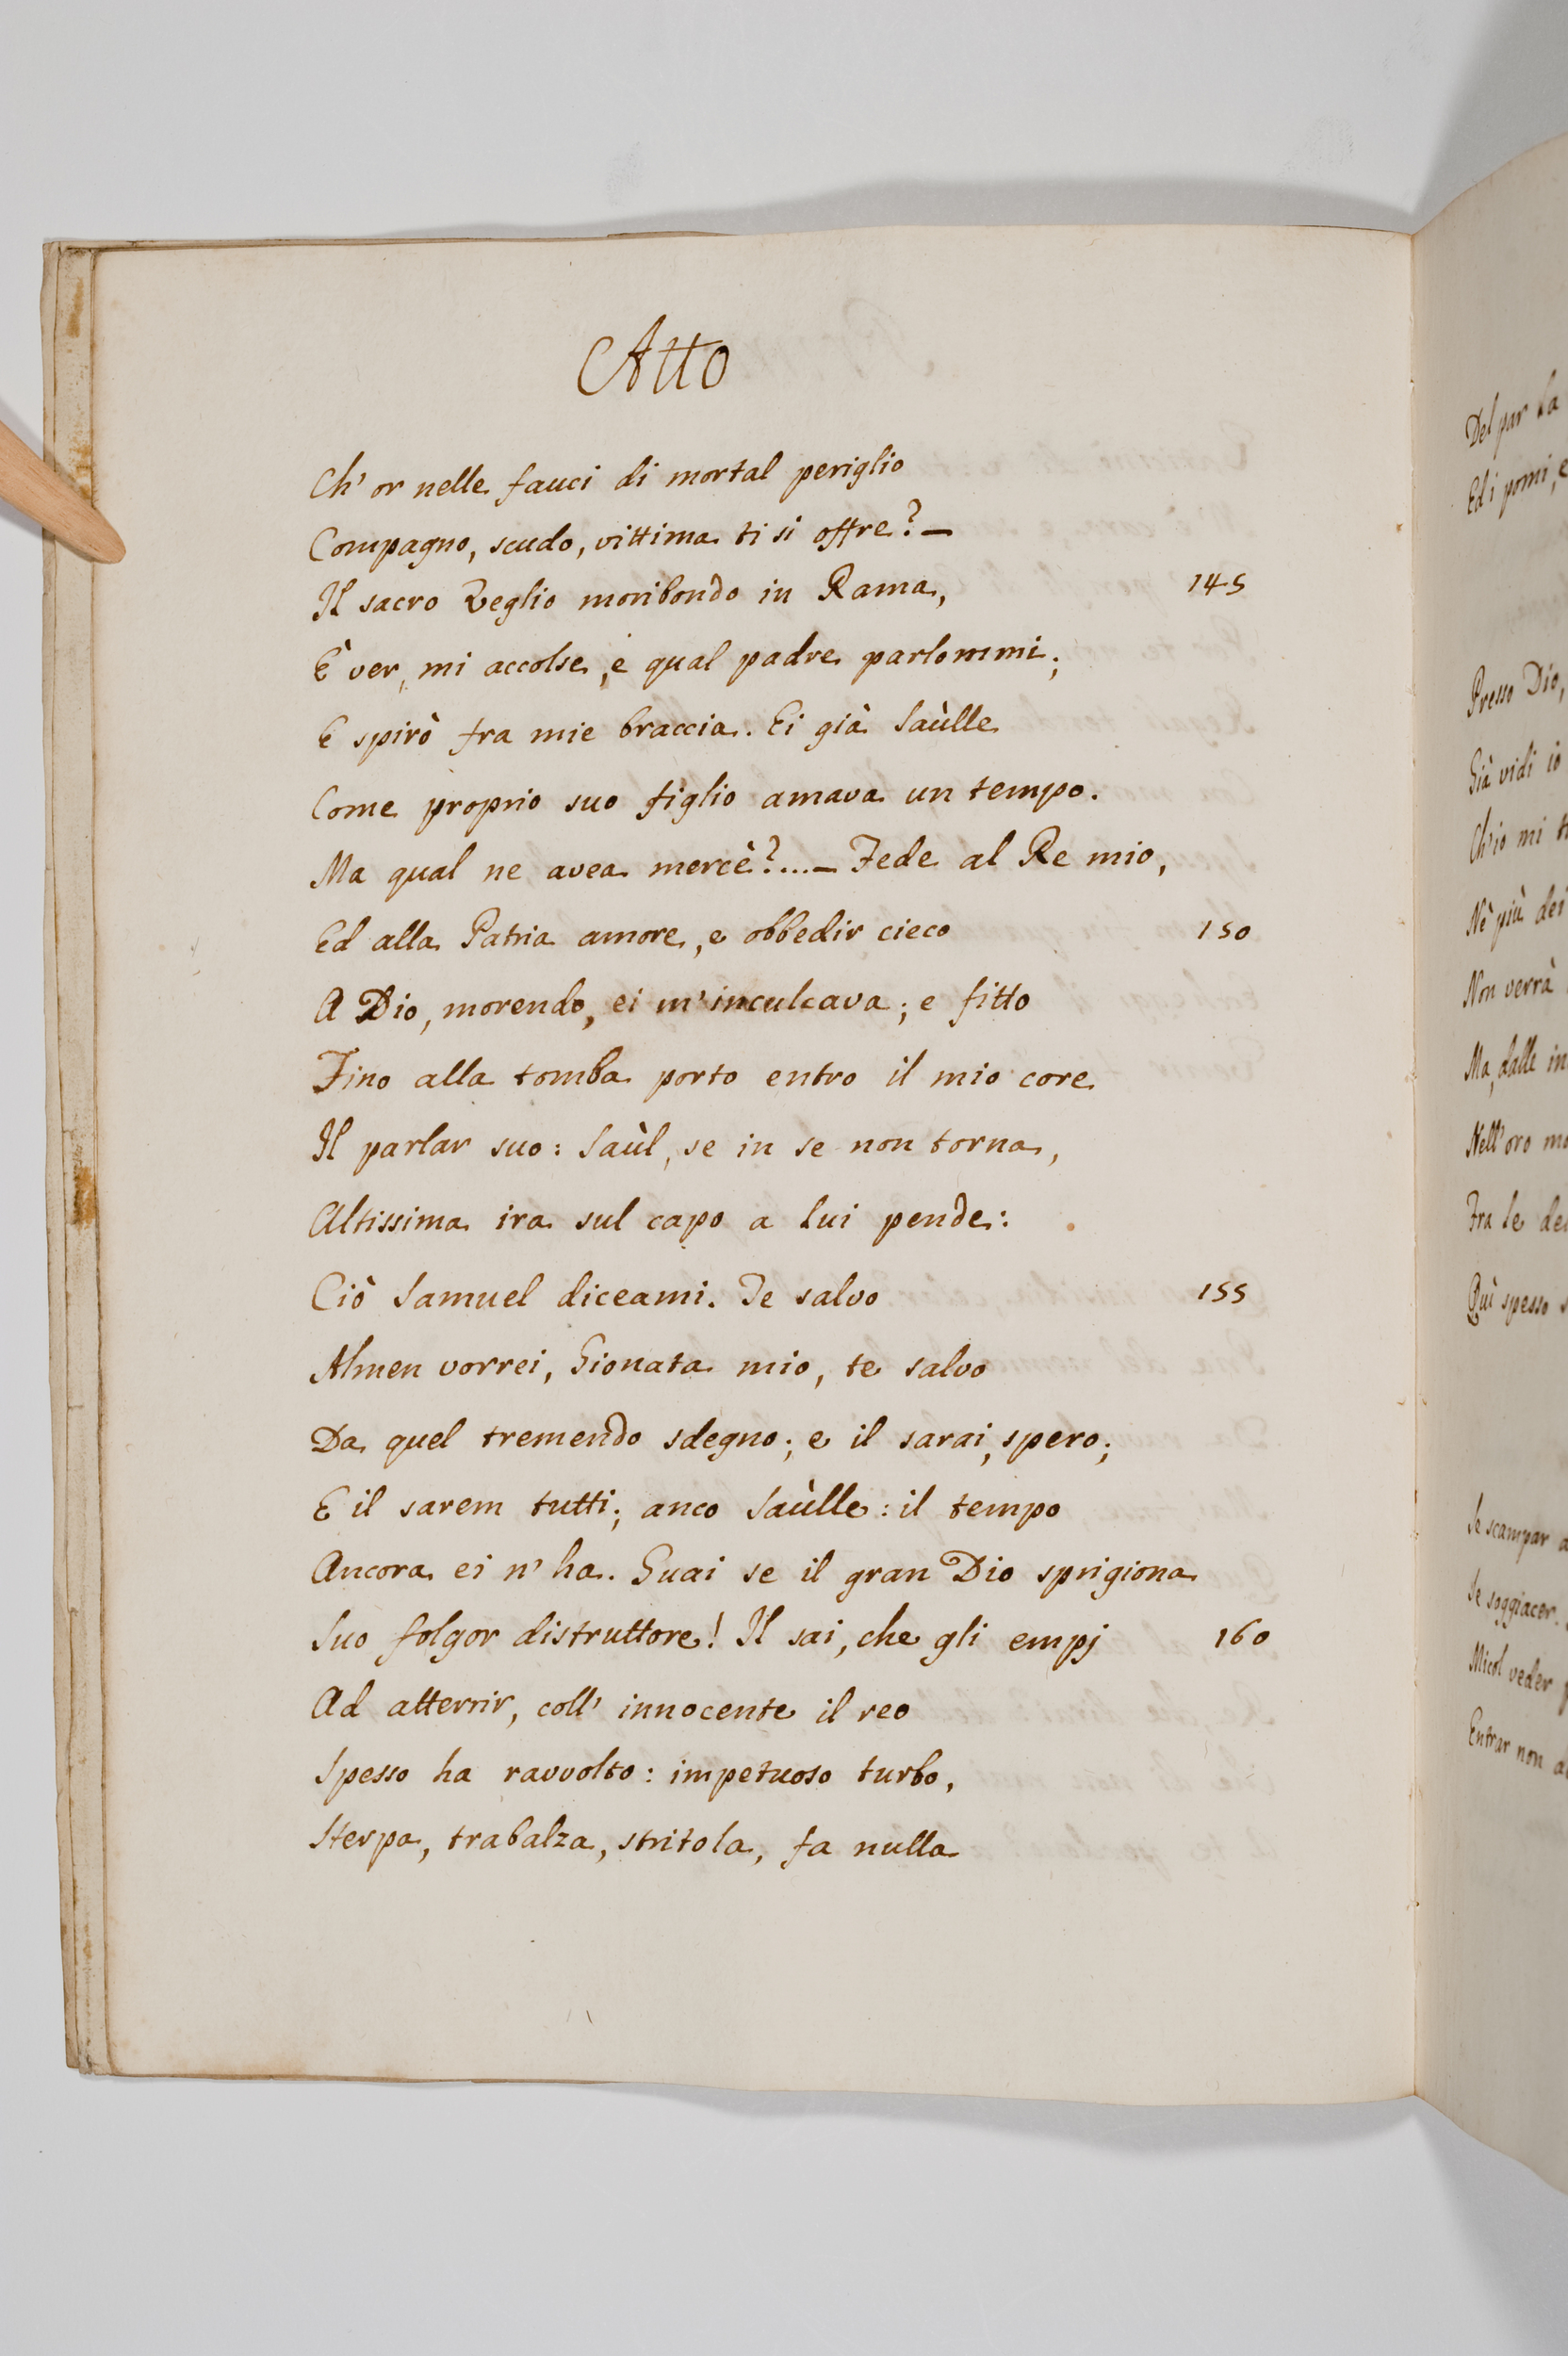 Atto
Ch' or nelle fauci di mortal periglio
Compagno, scudo, vittima ti si offre? —
Il sacro Veglio moribondo in Rama, 145
È ver, mi accolse, e qual padre parlommi;
E spirò fra mie braccia. Ei già Saùlle
Come proprio suo figlio amava un tempo.
Ma qual ne avea mercè?....— Fede al Re mio,
Ed alla Patria amore, e obbedir cieco 150
A Dio, morendo, ei m'inculcava; e fitto
Fino alla tomba porto entro il mio core
Il parlar suo: Saùl, se in se non torna,
Altissima ira sul capo a lui pende:
Ciò Samuel diceami. Te salvo 155
Almen vorrei, Gionata mio, te salvo
Da quel tremendo sdegno; e il sarai, spero;
E il sarem tutti; anco Saùlle: il tempo
Ancora ei n'ha. Guai se il gran Dio sprigiona
Suo folgor distruttore! Il sai, che gli empj 160
Ad atterrir, coll' innocente il reo
Spesso ha ravvolto: impetuoso turbo,
Sterpa, trabalza, stritola, fa nulla
Del par la
Ed i pomi, e
Presso Dio,
Già vidi io
Ch'io mi
Nè più dei
Non verrà
Ma, dalle in
Nell' oro
Fra le
Quì spesso
Se scampar
Se soggiacer
Micol veder
Entrar non